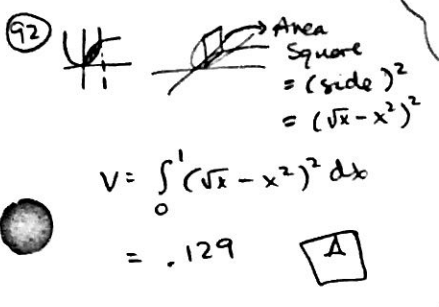 92
Area
Square
= (side)²
= (√x - x²)²
V = ∫₀¹ (√x - x²)² dx
= .129
A